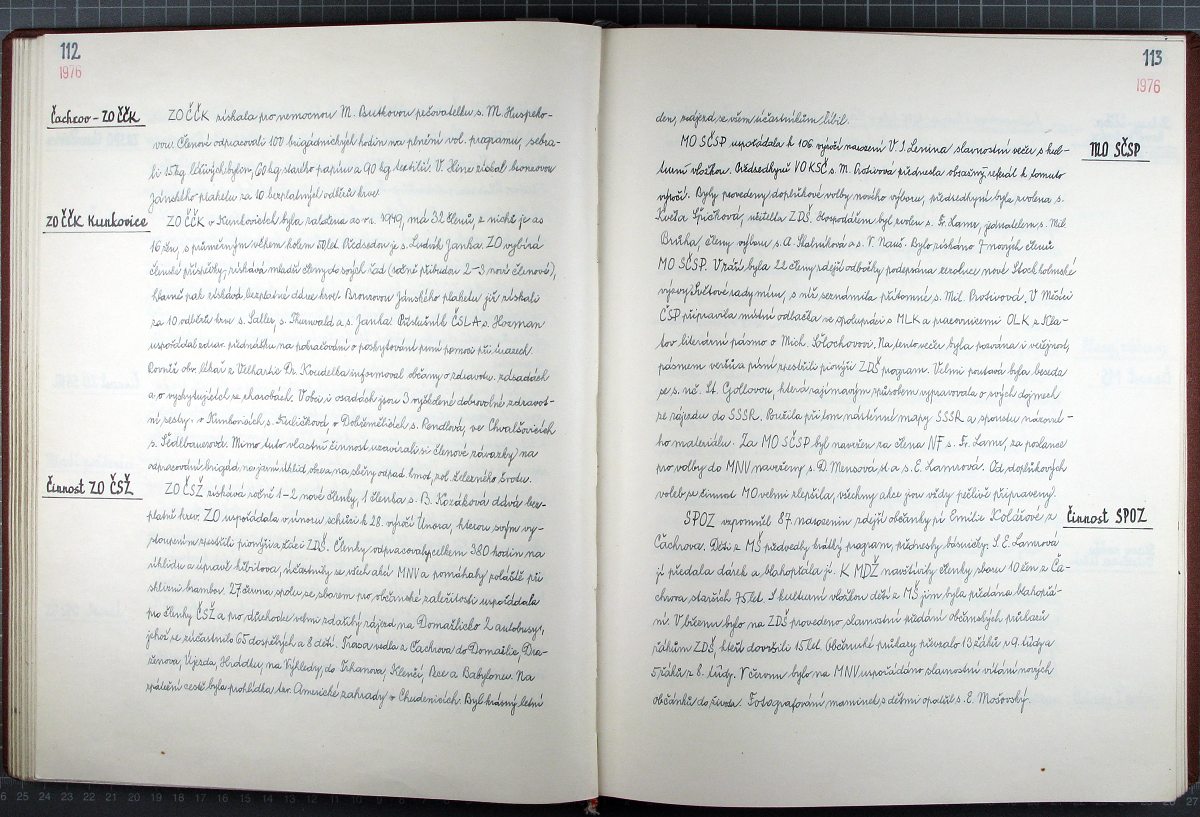 112
1976
Čachrov - ZO ČČK
ZO ČČK získala pro nemocnou M. Butkovou pečovatelku s. M. Huspeko-
vou. Členové odpracovali 100 brigádnických hodin na plnění vol. programu, sebra-
li 15 kg léčivých bylin, 60 kg starého papíru a 90 kg textilií. V. Heine získal bronzovou
Jánského plaketu za 10 bezplatných odběrů krve.
ZO ČČK Kunkovice
ZO ČČK v Kunkovicích byla založena as r. 1949, má 32 členů, z nichž je as
16 žen, s průměrným věkem kolem 50 let. Předsedou je s. Ludvík Janka. ZO vybírá
členské příspěvky, získává mladší členy do svých řad (ročně přibudou 2-3 noví členové),
hlavně pak získává bezplatné dárce krve. Bronzovou Jánského plaketu již získali
za 10 odběrů krve s. Salley, s. Thurnwald a s. Janka. Příslušník ČSLA s. Hozman
uspořádal zdrav. přednášku na pokračování o poskytování první pomoci při úrazech.
Rovněž obv. lékař z Velhartic Dr. Koudelka informoval občany o zdravotn. zásadách
a o vyskytujících se chorobách. V obci i osadách jsou 3 vyškolené dobrovolné zdravot-
ní sestry: v Kunkovicích s. Kuličková, v Dobřeměřicích s. Rendlová, ve Chvalšovicích
s. Sedlbauerová. Mimo tuto vlastní činnost uzavírali si členové závazky na
odpracování brigád, na jarní úklid obce, na sběry odpad. hmot, zvl. železného šrotu.
Činnost ZO ČSŽ
ZO ČSŽ získává ročně 1-2 nové členky, 1 členka s. B. Kozáková dává bez-
platně krev. ZO uspořádala v únoru schůzi k 28. výročí Února, kterou svým vy-
stoupením zpestřili pionýři a žáci ZDŠ. Členky odpracovaly celkem 380 hodin na
úklidu a úpravě hřbitova, účastnily se všech akcí MNV a pomáhaly zvláště při
sklizni brambor. 27. června spolu se sborem pro občanské záležitosti uspořádala
pro členky ČSŽ a pro důchodce velmi zdařilý zájezd na Domažlicko 2 autobusy,
jehož se zúčastnilo 65 dospělých a 8 dětí. Trasa vedla z Čachrova do Domažlic, Dra-
ženova, Újezda, Hrádku, na Výhledy, do Trhanova, Klenčí, Pece a Babylonu. Na
zpáteční cestě byla prohlídka tzv. Americké zahrady v Chudenicích. Byl krásný letní
113
1976
den, zájezd se všem účastníkům líbil.
MO SČSP
MO SČSP uspořádala k 106. výročí narození V. I. Lenina slavnostní večer s kul-
turní vložkou. Předsedkyně VO KSČ s. M. Protivová přednesla obsažný referát k tomuto
výročí. Byly provedeny doplňkové volby nového výboru, předsedkyní byla zvolena s.
Květa Špičková, učitelka ZDŠ. Hospodářem byl zvolen s. Fr. Lamr, jednatelem s. Mil.
Bruha, členy výboru s. A. Skalníková a s. V. Nauš. Bylo získáno 7 nových členů
MO SČSP. V září byla 22 členy zdejší odbočky podepsána rezoluce nové Stockholmské
výzvy Světové rady míru, s níž seznámila přítomné s. Mil. Protivová. V Měsíci
ČSP připravila místní odbočka ve spolupráci s MLK a pracovnicemi OLK z Kla-
tov literární pásmo o Mich. Šolochovovi. Na tento večer byla pozvána i veřejnost,
pásmem veršů a písní zpestřili pionýři ZDŠ program. Velmi poutavá byla beseda
se s. uč. Lt. Gollovou, která zajímavým způsobem vypravovala o svých dojmech
ze zájezdu do SSSR. Použila při tom nástěnné mapy SSSR a spoustu názorné-
ho materiálu. Za MO SČSP byl navržen za člena NF s. Fr. Lamr, za poslance
pro volby do MNV navrženy s. D. Mensová st. a s. E. Lamrová. Od doplňkových
voleb se činnost MO velmi zlepšila, všechny akce jsou vždy pečlivě připraveny.
Činnost SPOZ
SPOZ vzpomněl 87. narozenin zdejší občanky pí Emilie Kolářové z
Čachrova. Děti z MŠ předvedly krátký program, přednesly básničky. S. E. Lamrová
jí předala dárek a blahopřála jí. K MDŽ navštívily členky sboru 10 žen z Ča-
chrova starších 75 let. S kulturní vložkou dětí z MŠ jim bylo přidáno blahopřá-
ní. V březnu bylo na ZDŠ provedeno slavnostní předání občanských průkazů
žákům ZDŠ, kteří dovršili 15 let. Občanské průkazy převzalo 13 žáků z 9. třídy a
5 žáků z 8. třídy. V červnu bylo na MNV uspořádáno slavnostní vítání nových
občánků do života. Fotografování maminek s dětmi opatřil s. E. Mošovský.